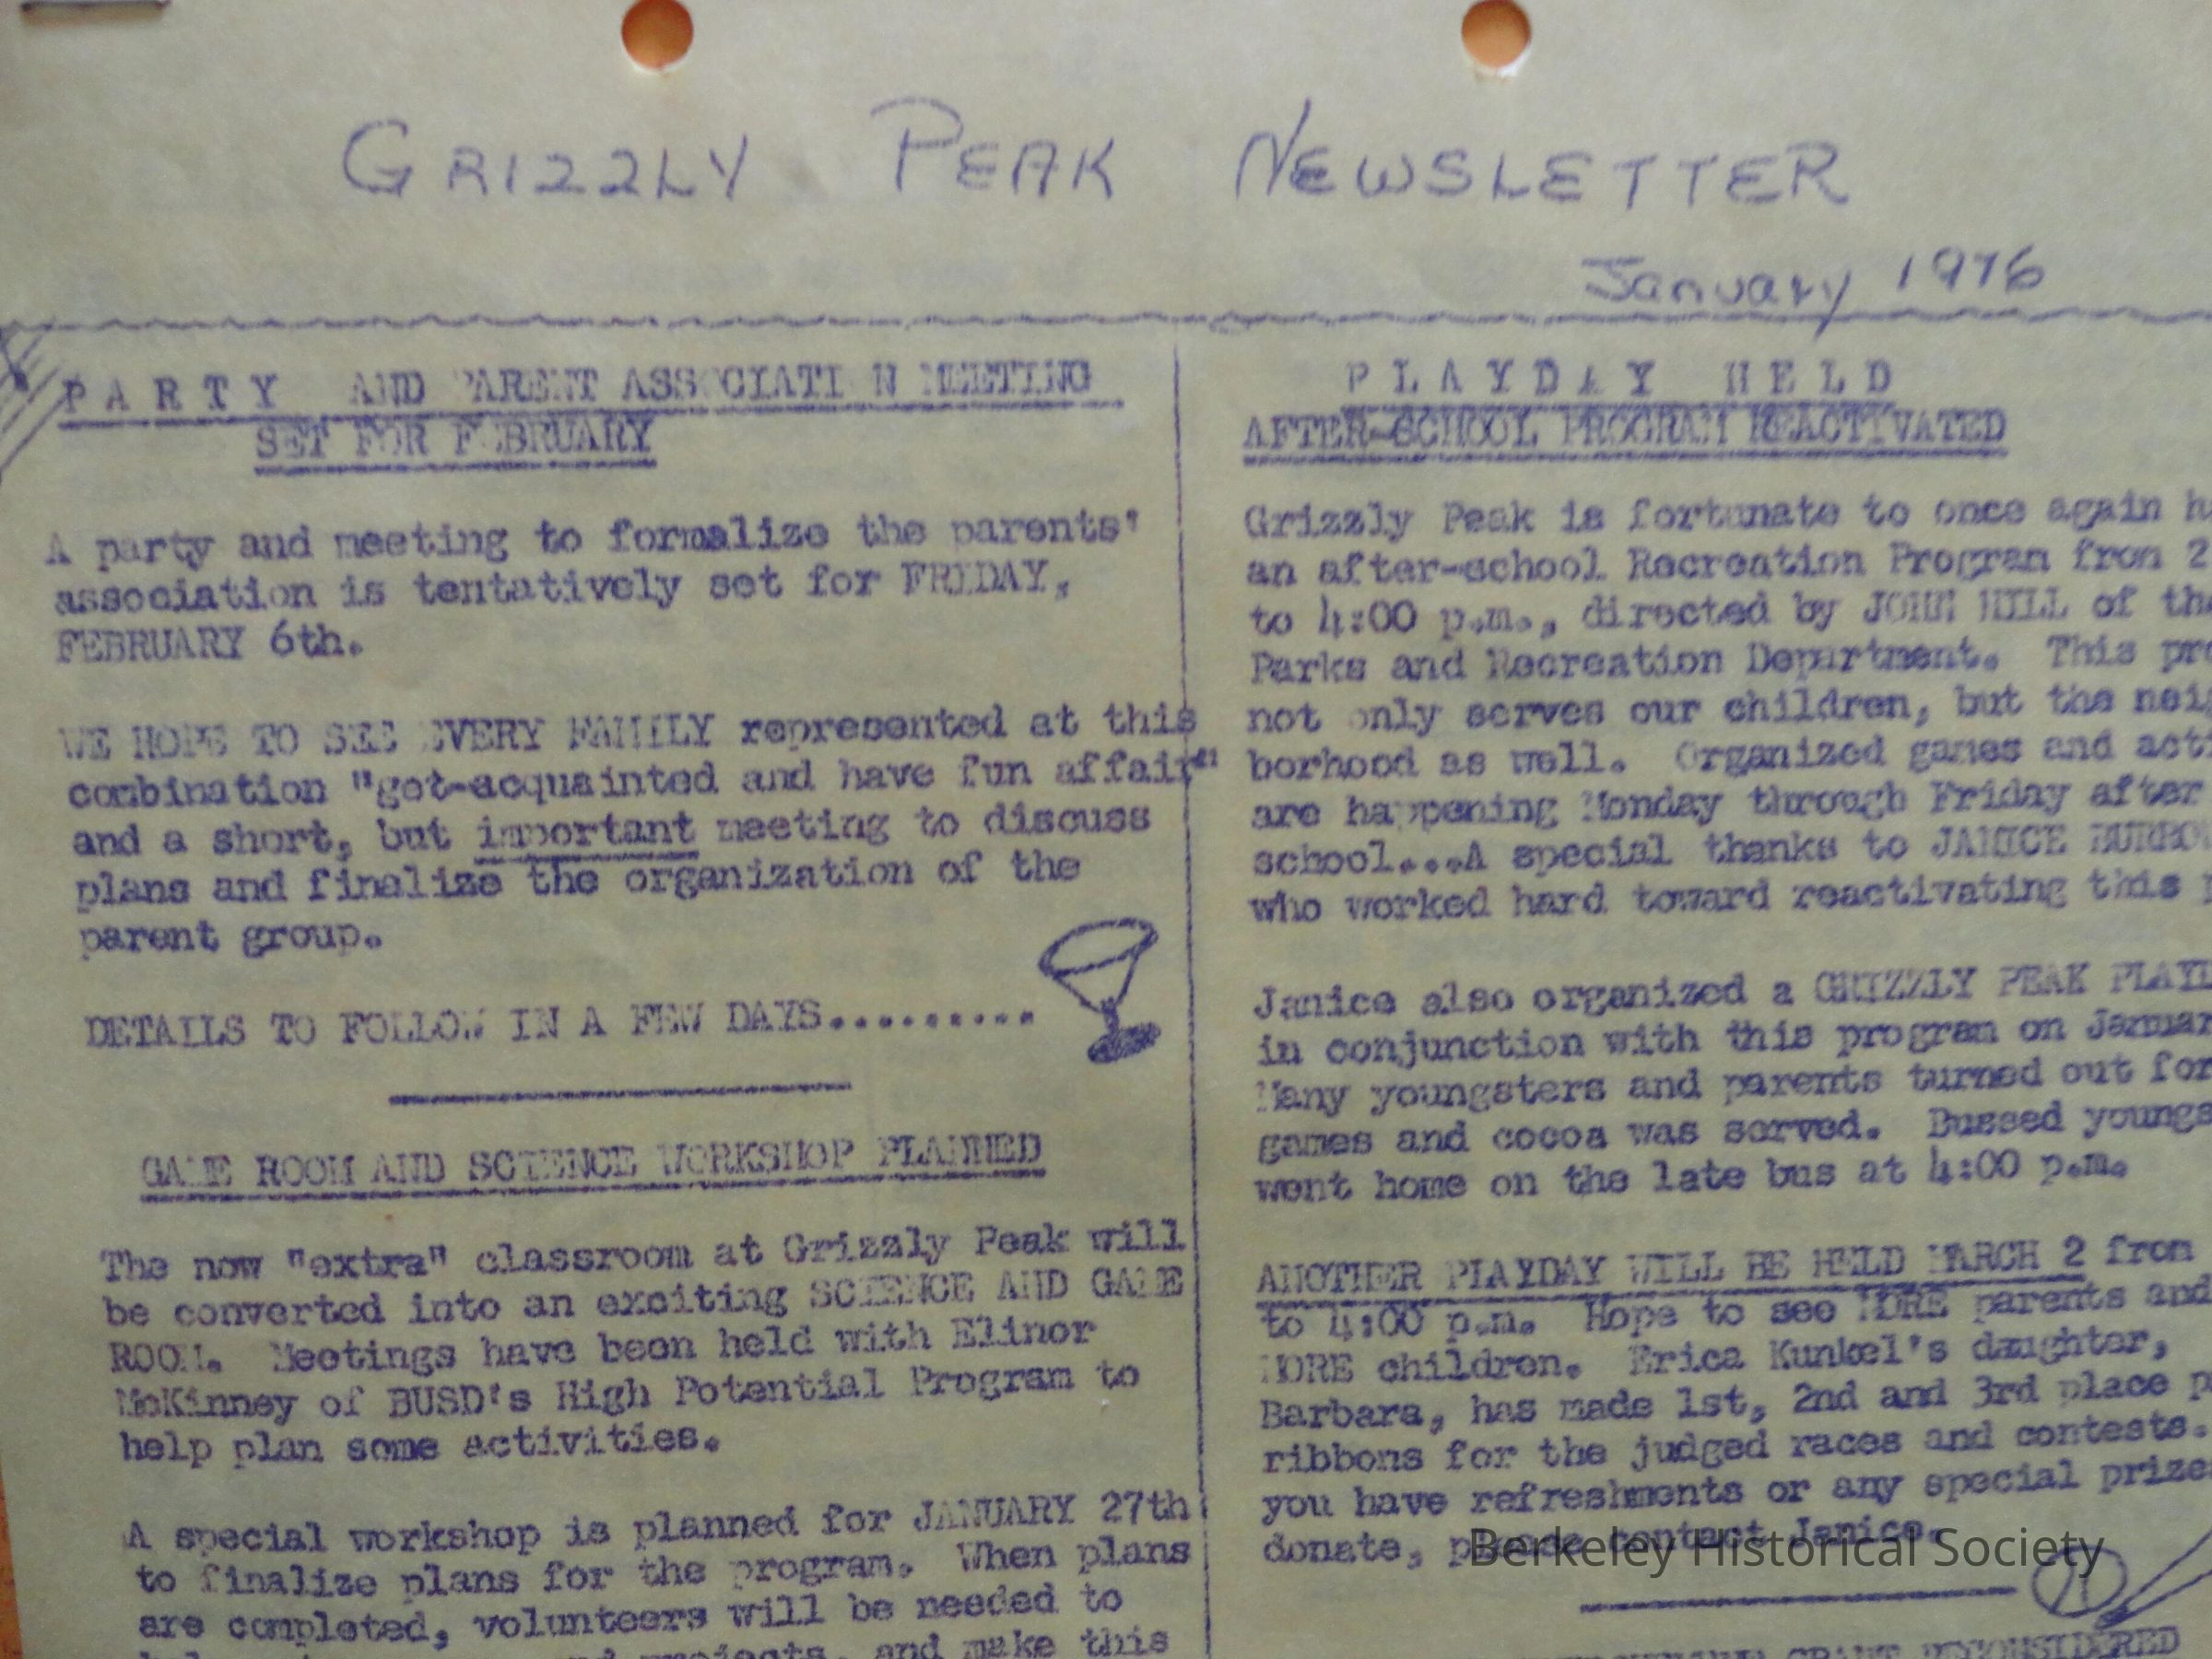 GRIZZLY PEAK NEWSLETTER
January 1976
PARTY AND PARENT ASSOCIATION MEETING
SET FOR FEBRUARY
A party and meeting to formalize the parents'
association is tentatively set for FRIDAY,
FEBRUARY 6th.
WE HOPE TO SEE EVERY FAMILY represented at this
combination "get-acquainted and have fun affair"
and a short, but important meeting to discuss
plans and finalize the organization of the
parent group.
DETAILS TO FOLLOW IN A FEW DAYS..........
GAME ROOM AND SCIENCE WORKSHOP PLANNED
The now "extra" classroom at Grizzly Peak will
be converted into an exciting SCIENCE AND GAME
ROOM. Meetings have been held with Elinor
McKinney of BUSD's High Potential Program to
help plan some activities.
A special workshop is planned for JANUARY 27th
to finalize plans for the program. When plans
are completed, volunteers will be needed to
projects, and make this
PLAYDAY HELD
AFTER-SCHOOL PROGRAM REACTIVATED
Grizzly Peak is fortunate to once again
an after-school Recreation Program from 2
to 4:00 p.m., directed by JOHN HILL of
Parks and Recreation Department. This
not only serves our children, but the
borhood as well. Organized games and
are happening Monday through Friday after
school...A special thanks to JANICE
who worked hard toward reactivating this
Janice also organized a GRIZZLY PEAK
in conjunction with this program on
Many youngsters and parents turned out for
games and cocoa was served. Bussed
went home on the late bus at 4:00 p.m.
ANOTHER PLAYDAY WILL BE HELD MARCH 2 from
to 4:00 p.m. Hope to see MORE parents and
MORE children. Erica Kunkel's daughter,
Barbara, has made 1st, 2nd and 3rd place
ribbons for the judged races and contests.
you have refreshments or any special
donate, please contact Janice.
Berkeley Historical Society
GRANT RECONSIDERED